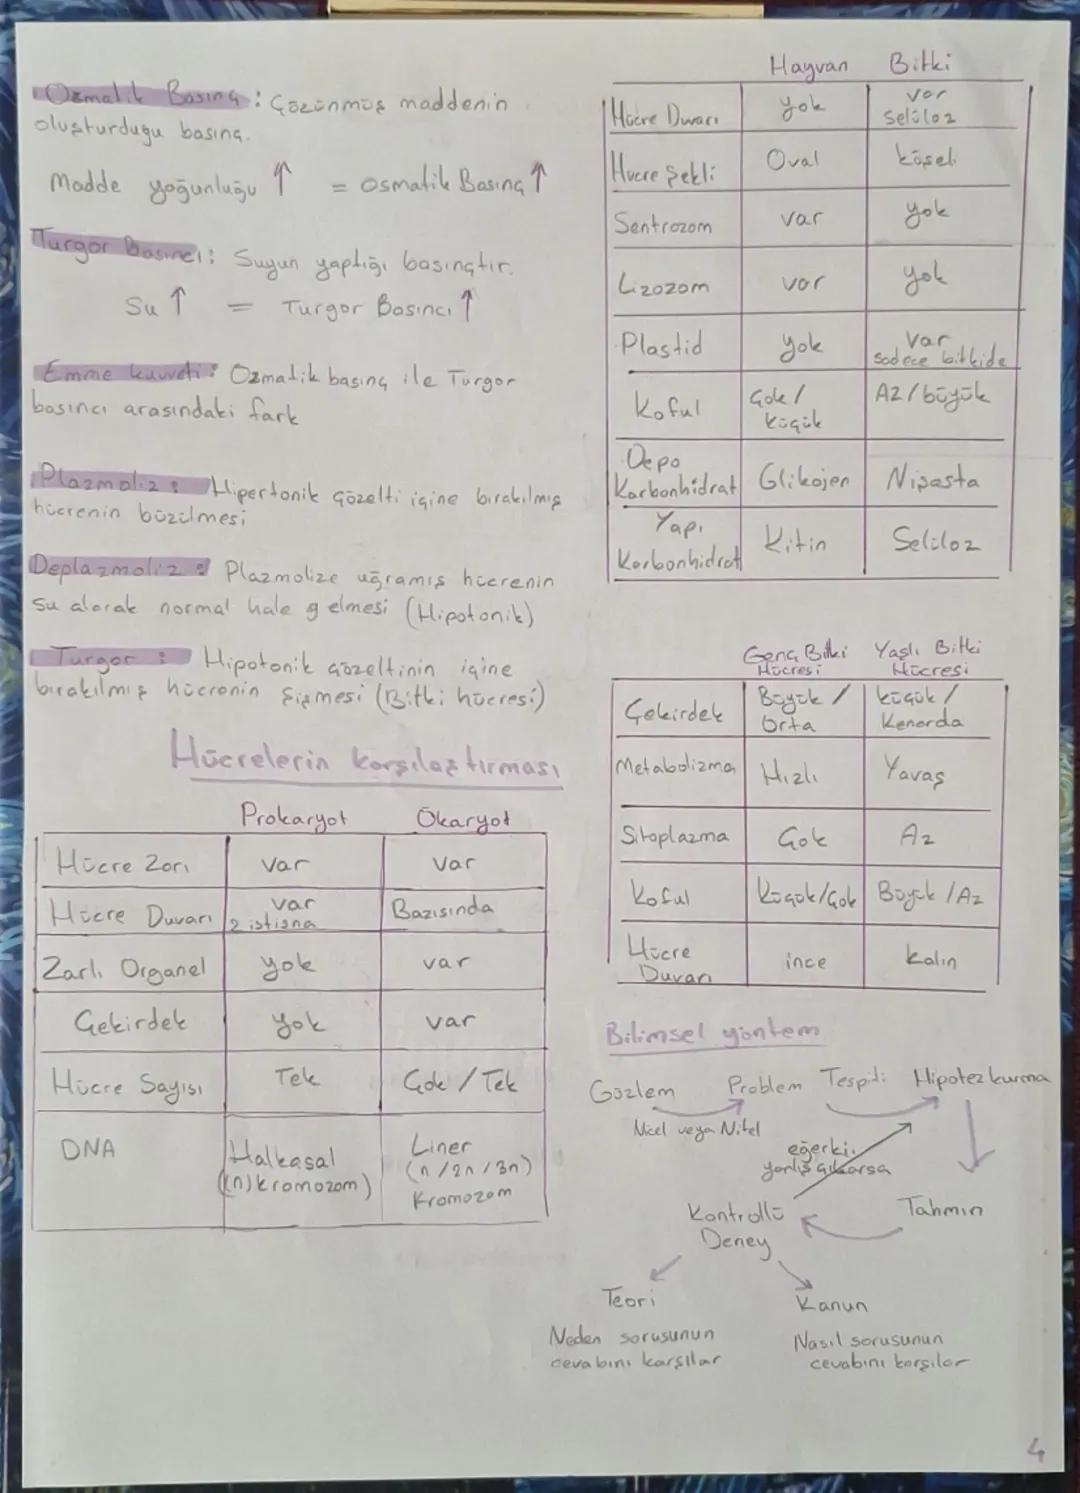 Ozmatik Basınç : Çözünmüş maddenin
oluşturduğu basınç.
Madde yoğunluğu ↑ = Osmatik Basınç ↑
Turgor Basıncı : Suyun yaptığı basınçtır.
Su ↑ = Turgor Basıncı ↑
Emme kuvveti : Ozmatik basınç ile Turgor
basıncı arasındaki fark
Plazmoliz : Hipertonik çözelti içine bırakılmış
hücrenin büzülmesi
Deplazmoliz : Plazmolize uğramış hücrenin
su alarak normal hale gelmesi (Hipotonik)
Turgor : Hipotonik çözeltinin içine
bırakılmış hücrenin şişmesi (Bitki hücresi)
Hücrelerin karşılaştırması
Prokaryot Ökaryot
Hücre Zarı var var
Hücre Duvarı var 2 istisna Bazısında
Zarlı Organel yok var
Çekirdek yok var
Hücre Sayısı Tek Çok / Tek
DNA Halkasal Liner
((n) kromozom) (n / 2n / 3n)
Kromozom
Hayvan Bitki
Hücre Duvarı yok var selüloz
Hücre Şekli Oval köşeli
Sentrozom var yok
Lizozom var yok
Plastid yok var sadece bitkide
Koful Çok / küçük Az / büyük
Depo Karbonhidrat Glikojen Nişasta
Yapı Karbonhidrat Kitin Selüloz
Genç Bitki Hücresi Yaşlı Bitki Hücresi
Çekirdek Büyük / Orta küçük / Kenarda
Metabolizma Hızlı Yavaş
Sitoplazma Çok Az
Koful Küçük/Çok Büyük / Az
Hücre Duvarı ince kalın
Bilimsel yöntem
Gözlem Problem Tespiti Hipotez kurma
Nicel veya Nitel
eğerki
yanlış çıkarsa
Kontrollü Deney Tahmin
Teori Kanun
Neden sorusunun
cevabını karşılar
Nasıl sorusunun
cevabını karşılar
4